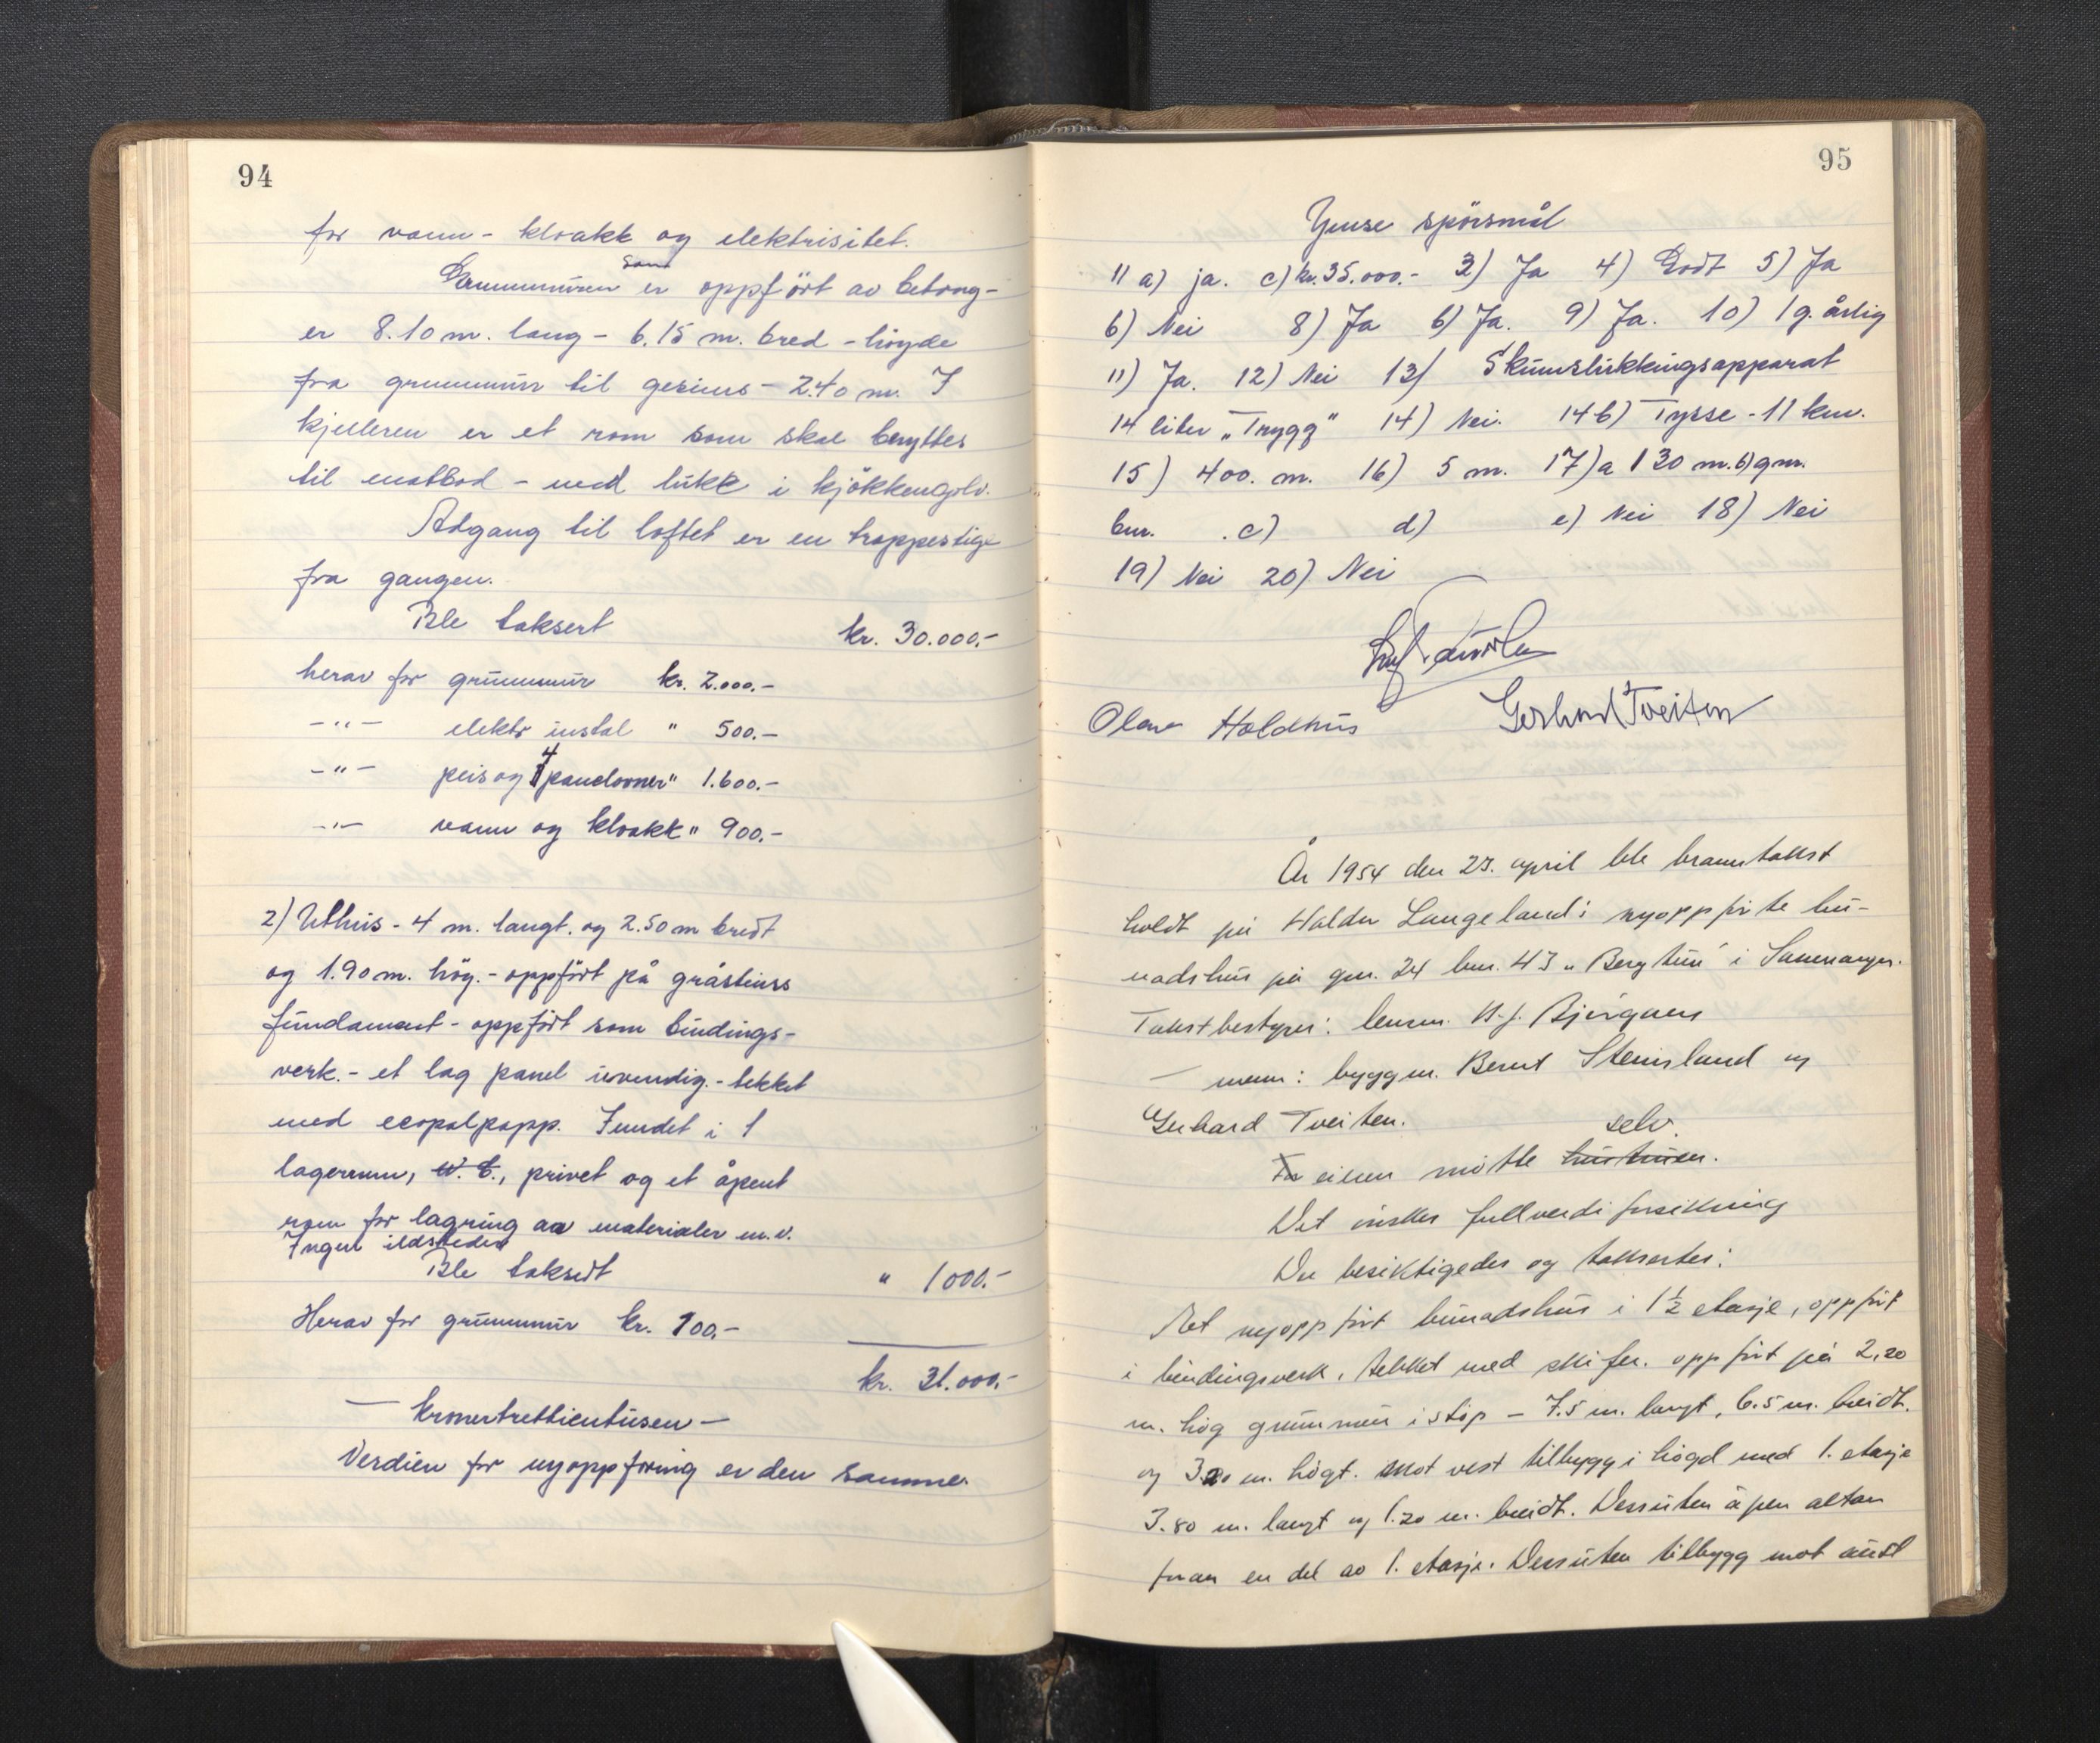 94
for vann - kloakk og elektrisitet.
Grunnmuren som er oppført av betong -
er 8.10 m. lang - 6.15 m. bred - høyde
fra grunnmur til gesims - 2.40 m. I
kjelleren er et rom som skal benyttes
til matbod - med lukk i kjøkkengolv.
Adgang til loftet er en trappestige
fra gangen.
Ble taksert kr. 30.000.-
herav for grunnmur kr. 2.000.-
-"- elektr instal " 500.-
-"- peis og 4 panelovner " 1.600.-
-"- vann og kloakk " 900.-
2) Uthus - 4 m. langt. og 2.50 m bredt
og 1.90 m. høg. - oppført på gråsteins
fundament - oppført som bindings-
verk. - et lag panel uvendig. - tekket
med ecopalpapp. Inndet i 1
lagerrom, W.C., privet og et åpent
rom for lagring av materialer m.v.
Ingen ildsteder
Ble taksert " 1000.-
Herav for grunnmur kr. 100.-
kr. 31.000.-
- kronertrettientusen -
Verdien for nyoppføring er den samme.
95
Ymse spörsmål
1) a) ja. c) kr. 35.000.- 3) Ja 4) Godt 5) Ja
6) Nei 8) Ja b) Ja. 9) Ja. 10) 1 g. årlig
11) Ja. 12) Nei 13) Skumslukkingsapparat
14 liter „Trygg" 14) Nei. 14 b) Tysse - 11 km.
15) 400. m. 16) 5 m. 17) a 130 m. b) gnr.
bnr. c) d) e) Nei 18) Nei
19) Nei 20) Nei
Olav Holdhus Gerhard Tveiten
År 1954 den 23. april ble branntakst
holdt på Haldor Langeland's nyoppførte bu-
nadshus på gnr. 24 bnr. 43 „Bergtun" i Samnanger.
Takstbestyrer: lensm. N. J. Bjørgaas
- menn: byggm. Bernt Steinsland og
Gerhard Tveiten.
For eieren møtte hustruen. selv.
Det ønskes fullverdiforsikring
Der besiktigedes og takserte:
Et nyoppført bunadshus i 1 1/2 etasje, oppført
i bindingsverk, tekket med skifer. oppført på 2,20
m. høg grunnmur i støp - 7.5 m. langt, 6.5 m. breidt.
og 3.20 m. høgt. Mot vest tilbygg i høgd med 1. etasje
3.80 m. langt og 1.20 m. breidt. Dessuten åpen altan
foran en del av 1. etasje. Dessuten tilbygg mot aust